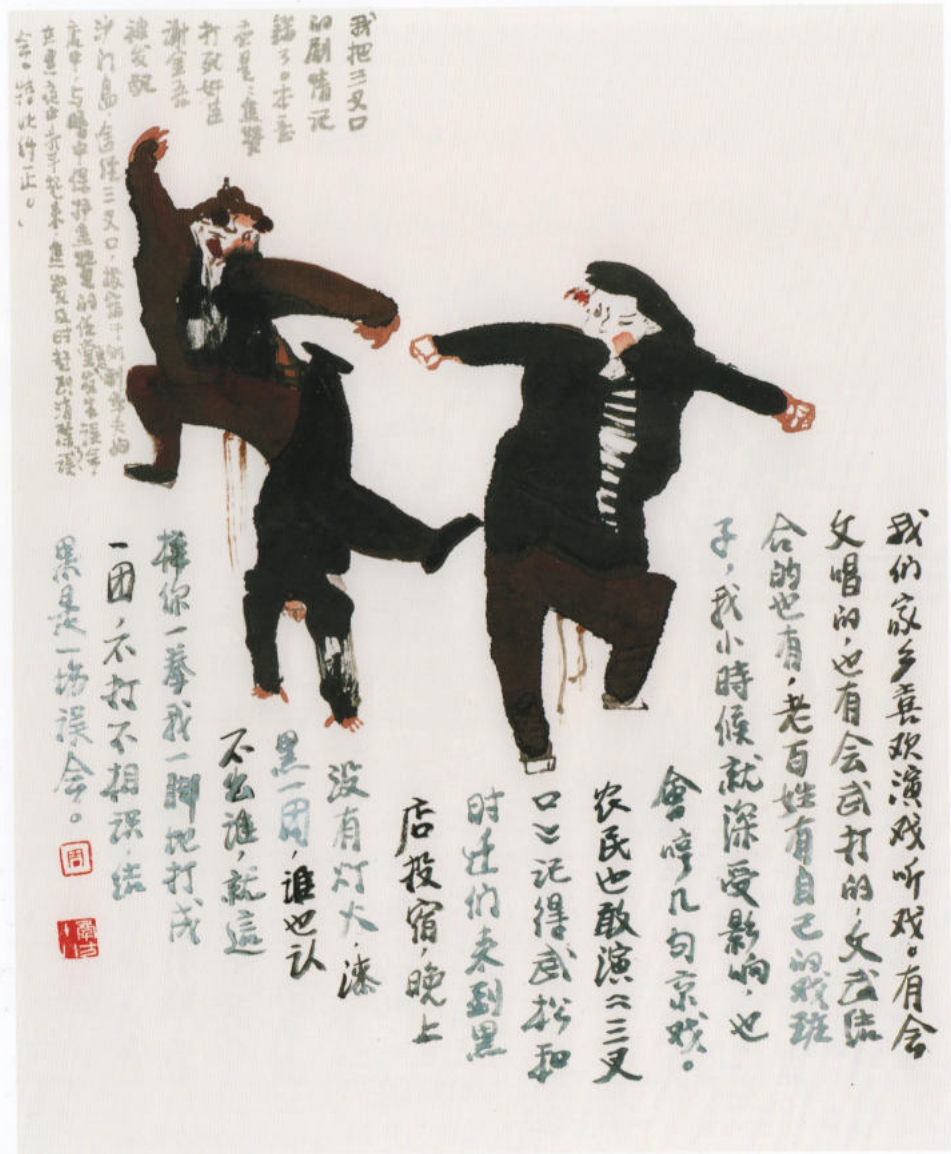 我们家乡喜欢演戏听戏。有会
文唱的,也有会武打的,文武结
合的也有,老百姓有自己的戏班
子,我小時候就深受影响,也
會哼几句京戏。
农民也敢演《三叉
口》记得武松和
时迁们来到黑
店投宿,晚上
没有灯火,漆
黑一团,谁也认
不出谁,就這
樣你一拳我一脚地打成
一团,不打不相识,结
果是一场误会。
周
我把三叉口
的剧情记
错了。本
应是:焦赞
打死奸臣
谢金吾
被发配
沙门岛,途经三叉口,投宿于刘利华夫妇
店中,与暗中保护焦赞的任堂惠发生误会,
在黑夜中杀斗起来,焦赞及时赶到消除误
会。特此纠正。